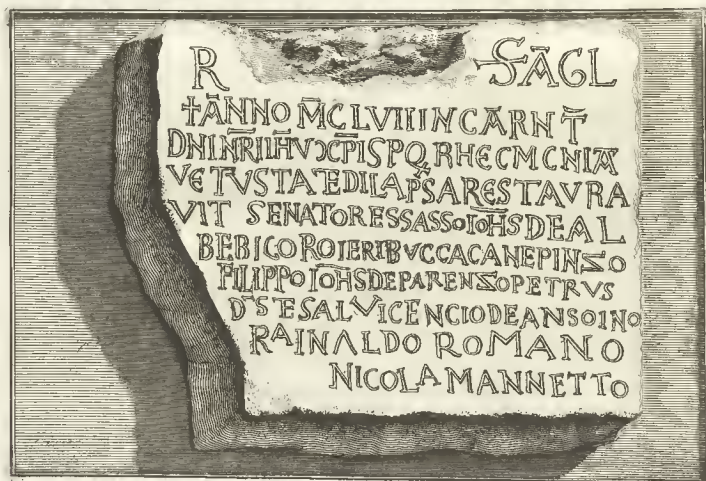 R SĀGL
+ĀNNO M̄CLVIII INCĀRNT̄
DNI N̄RI IH̄V XC̄PI SPQR HEC MCNIĀ
VETVSTATE DILAP̄SA RESTAVRA
VIT SENATORES SASSO IOH̄S DE AL
BEBICO ROIERI BVCCACANE PINZO
FILIPPO IOH̄S DE PARENZO PETRVS
D̄S TE SALVI CENCIO DE ANSOINO
RAINALDO ROMANO
NICOLA MANNETTO